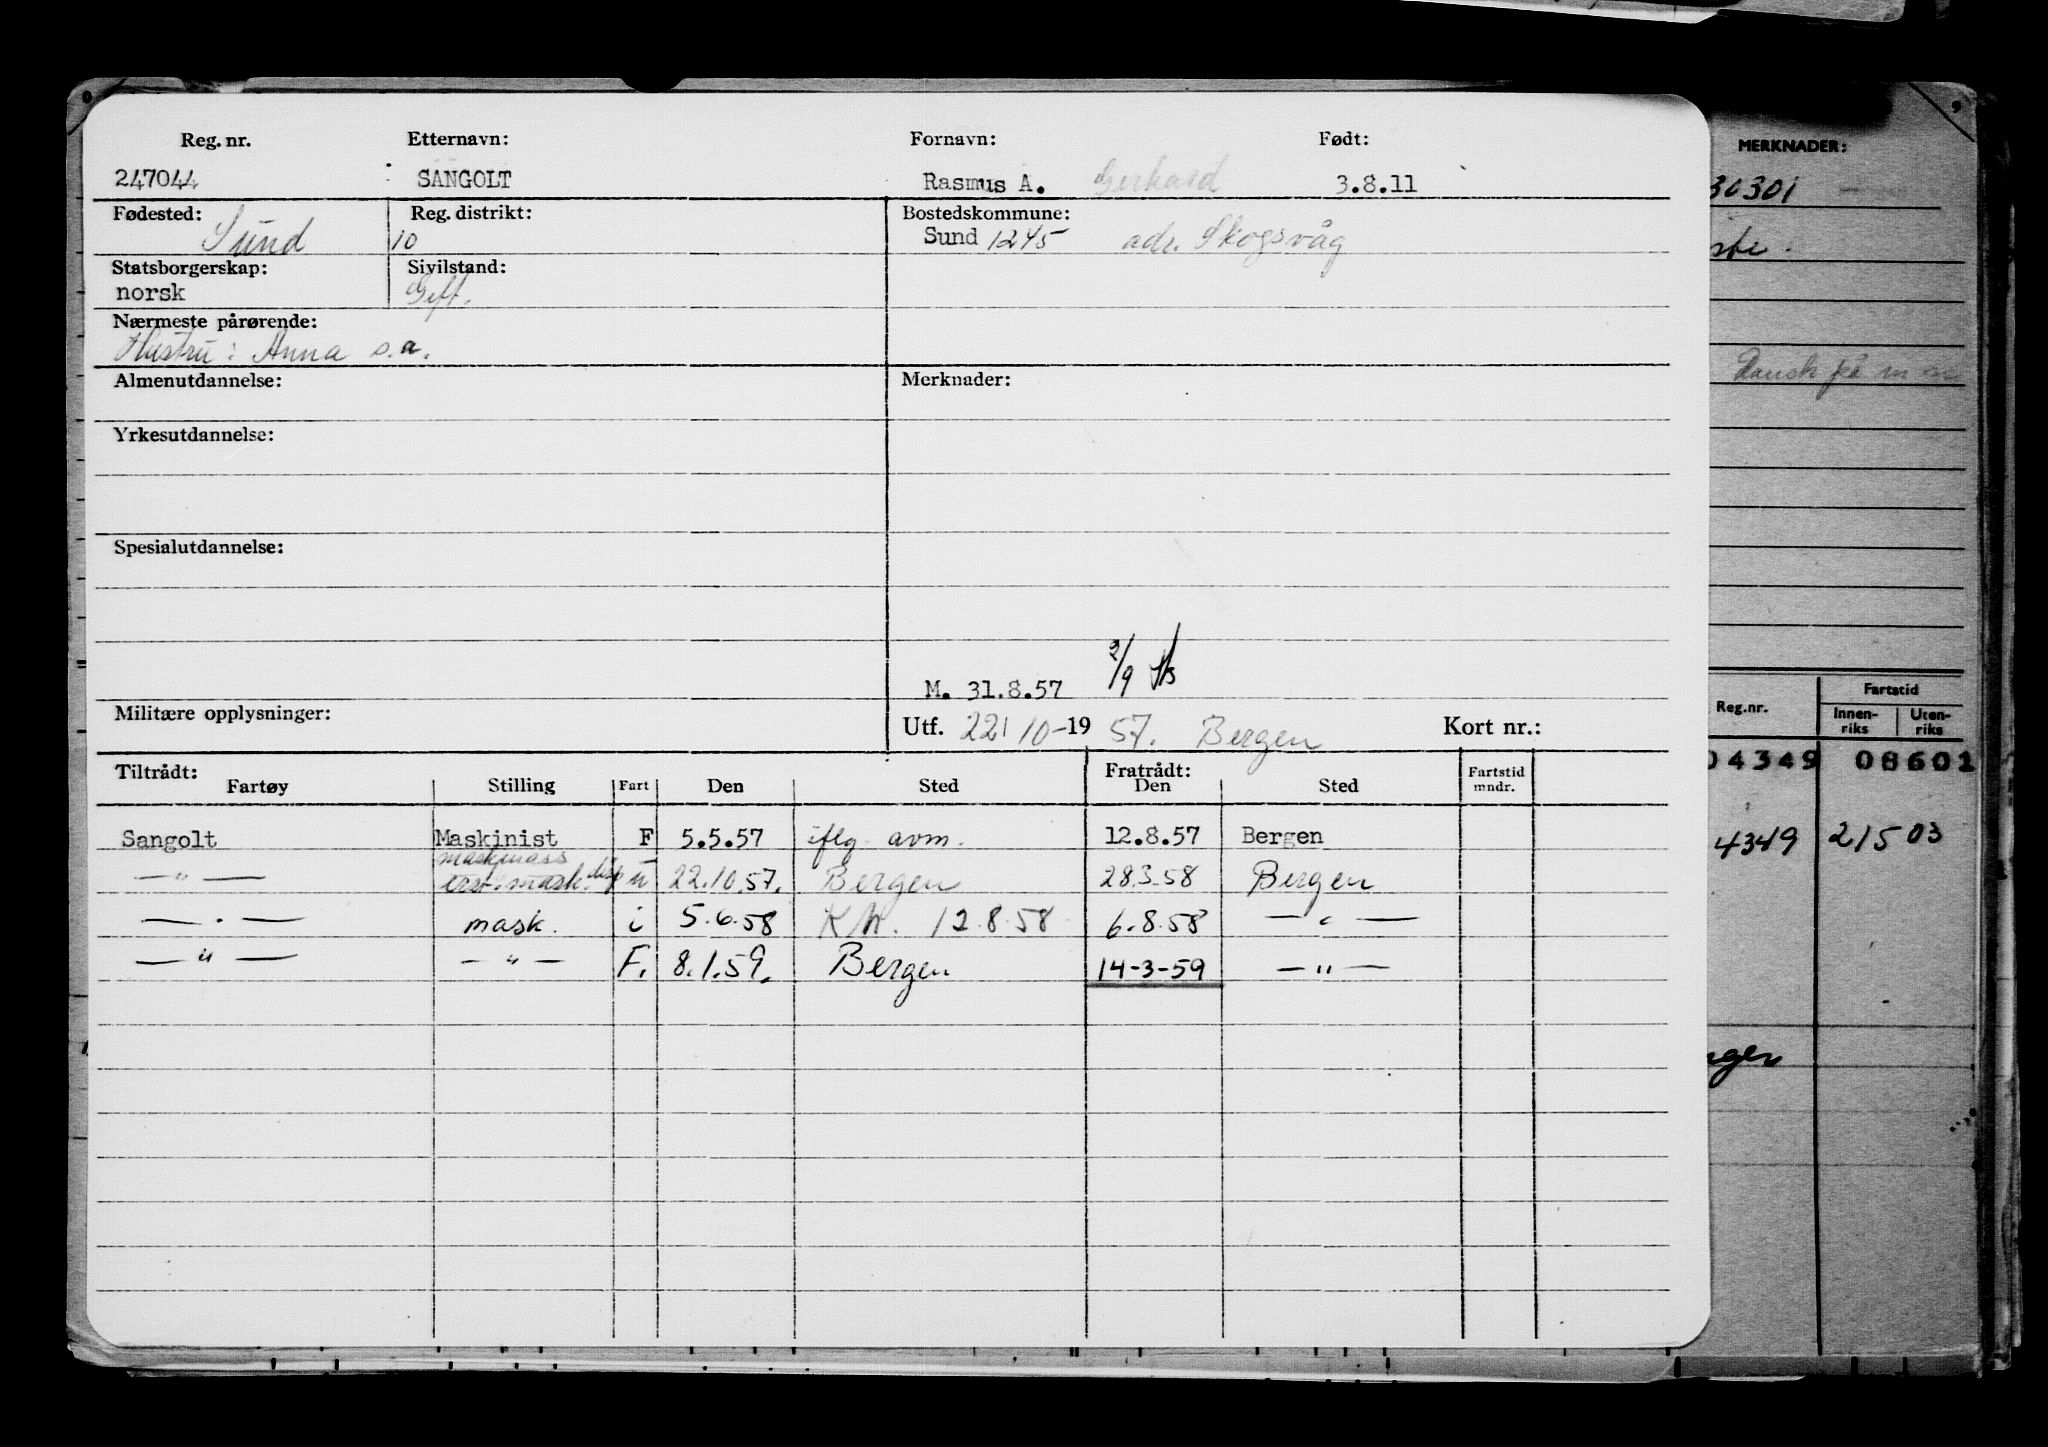 Reg. nr. Etternavn: Fornavn: Født:
247044 SANGOLT Rasmus A. Gerhard 3.8.11
Fødested: Reg. distrikt: Bostedskommune:
Sund 10 Sund 1245 adr. Skogsvåg
Statsborgerskap: Sivilstand:
norsk Gift.
Nærmeste pårørende:
Hustru: Anna s.a.
Almenutdannelse: Merknader:
Yrkesutdannelse:
Spesialutdannelse:
M. 31.8.57 2/9
Militære opplysninger: Utf. 22/10-1957. Bergen Kort nr.:
Tiltrådt: Fratrådt:
Fartøy Stilling Fart Den Sted Den Sted Fartstid mndr.
Sangolt Maskinist F 5.5.57 iflg avm. 12.8.57 Bergen
maskinass
—"— erst. mask. disp u 22.10.57. Bergen 28.3.58 Bergen
—"— mask. i 5.6.58 12.8.58 6.8.58 —"—
—"— —"— F. 8.1.59. Bergen 14-3-59 —"—
MERKNADER:
30301
Dansk på
Reg.nr. Fartstid
Innen-riks Uten-riks
04349 08602
4349 21503